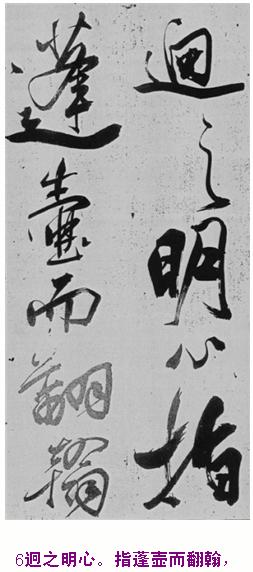 迴之明心指
蓬壷而翻翰
6迥之明心。指蓬壶而翻翰，